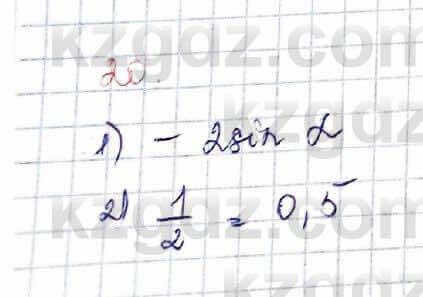 kzgdz.com
20.
1) - 2sin α
2) 1/2 = 0,5